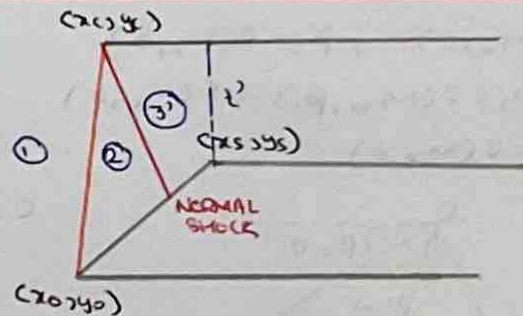 (xc,yc)
3'
t'
1
2
(xs,ys)
NORMAL
SHOCK
(x0,y0)